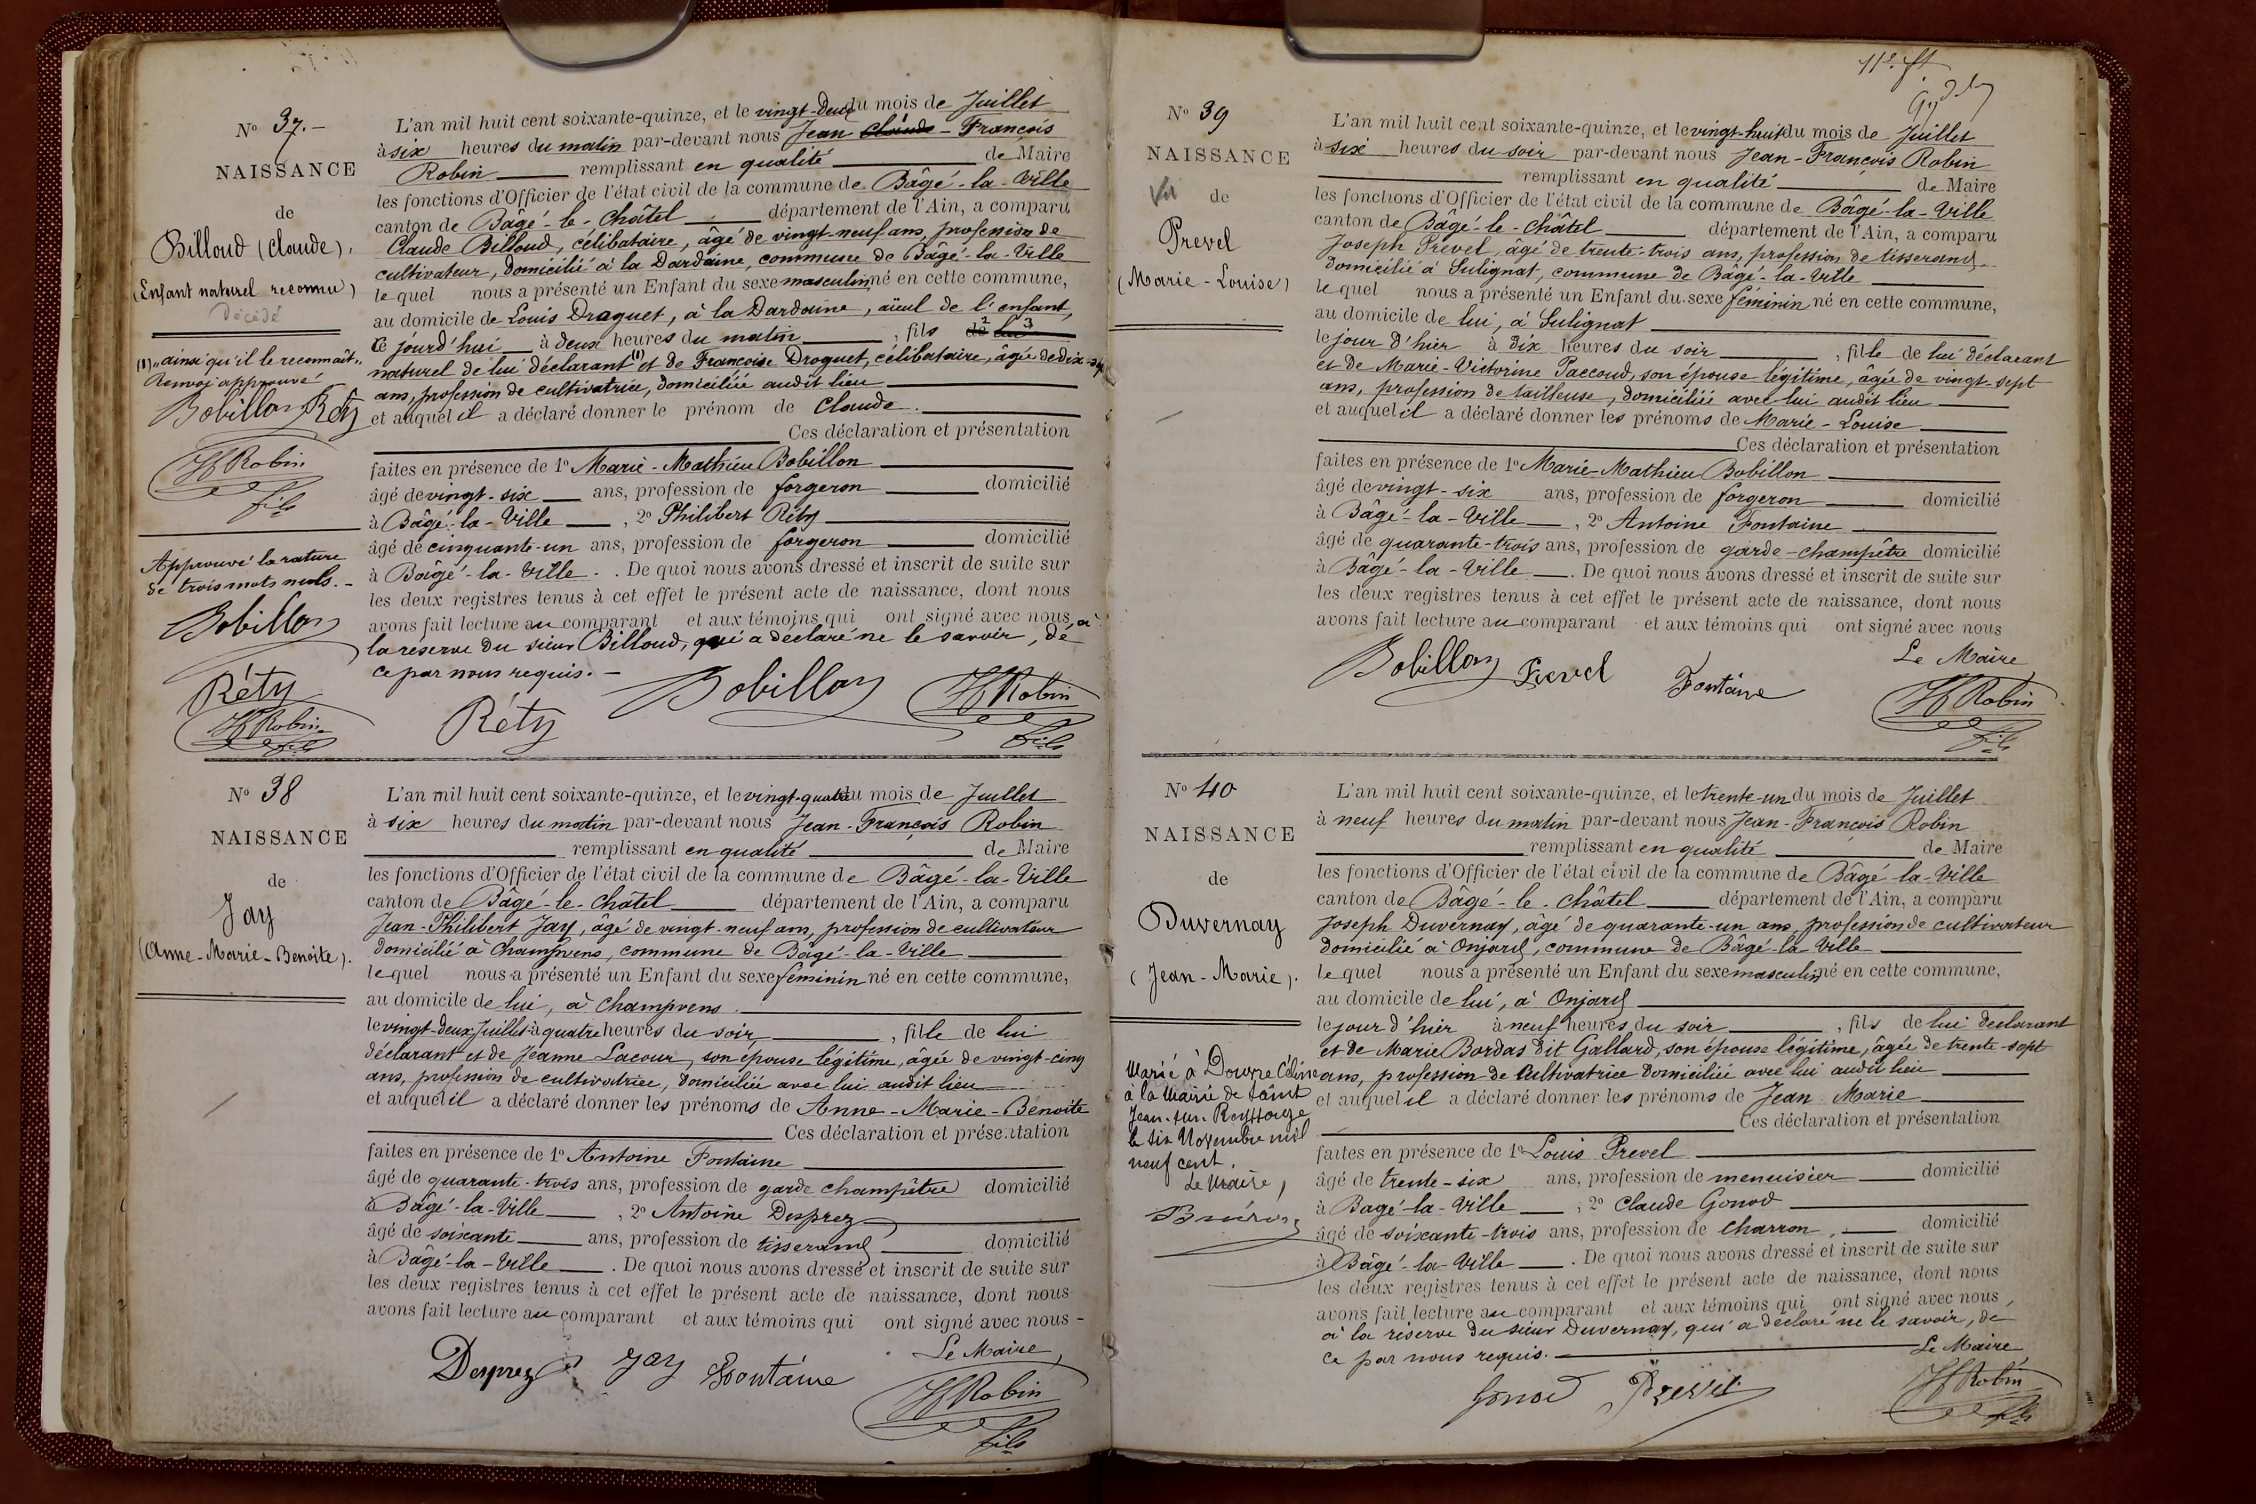 N° 37.-
NAISSANCE
de
Billoud (Claude),
(Enfant naturel reconnu)
Décédé
(1) "ainsi qu'il le reconnaît."
Renvoi approuvé
Bobillon Réty
Robin
fils
Approuvé la rature
de trois mots nuls. -
Bobillon
Réty
Robin
fils
L'an mil huit cent soixante-quinze, et le vingt-deux du mois de Juillet
à six heures du matin par-devant nous Jean Claude - François
Robin remplissant en qualité de Maire
les fonctions d'Officier de l'état civil de la commune de Bâgé-la-Ville
canton de Bâgé-le-Châtel département de l'Ain, a comparu
Claude Billoud, célibataire, âgé de vingt-neuf ans, profession de
cultivateur, domicilié à la Dardaine, commune de Bâgé-la-Ville
lequel nous a présenté un Enfant du sexe masculin né en cette commune,
au domicile de Louis Draguet, à la Dardaine, aïeul de l'enfant,
ce jourd'hui à deux heures du matin ; fils de² lui³
naturel de lui déclarant (1) et de Françoise Droguet, célibataire, âgée de dix-sept
ans, profession de cultivatrice, domiciliée audit lieu
et auquel il a déclaré donner le prénom de Claude.
Ces déclaration et présentation
faites en présence de 1° Marie-Mathieu Bobillon
âgé de vingt-six ans, profession de forgeron domicilié
à Bâgé-la-Ville, 2° Philibert Réty
âgé de cinquante-un ans, profession de forgeron domicilié
à Bâgé-la-Ville. . De quoi nous avons dressé et inscrit de suite sur
les deux registres tenus à cet effet le présent acte de naissance, dont nous
avons fait lecture au comparant et aux témoins qui ont signé avec nous, à
la réserve du sieur Billoud, qui a déclaré ne le savoir, de
ce par nous requis. -
Réty Bobillon Robin
fils
N° 38
NAISSANCE
de
Jay
(Anne-Marie-Benoite).
L'an mil huit cent soixante-quinze, et le vingt-quatre du mois de Juillet
à six heures du matin par-devant nous Jean-François Robin
remplissant en qualité de Maire
les fonctions d'Officier de l'état civil de la commune de Bâgé-la-Ville
canton de Bâgé-le-Châtel département de l'Ain, a comparu
Jean-Philibert Jay, âgé de vingt-neuf ans, profession de cultivateur
domicilié à Champvens, commune de Bâgé-la-Ville
lequel nous a présenté un Enfant du sexe féminin né en cette commune,
au domicile de lui, à Champvens.
le vingt-deux Juillet à quatre heures du soir, fille de lui
déclarant et de Jeanne Lacour, son épouse légitime, âgée de vingt-cinq
ans, profession de cultivatrice, domiciliée avec lui audit lieu
et auquel il a déclaré donner les prénoms de Anne-Marie-Benoite
Ces déclaration et présentation
faites en présence de 1° Antoine Fontaine
âgé de quarante-trois ans, profession de garde champêtre domicilié
à Bâgé-la-Ville, 2° Antoine Desprez
âgé de soixante ans, profession de tisserand domicilié
à Bâgé-la-Ville. De quoi nous avons dressé et inscrit de suite sur
les deux registres tenus à cet effet le présent acte de naissance, dont nous
avons fait lecture au comparant et aux témoins qui ont signé avec nous -
Le Maire,
Desprez Jay Fontaine
Robin
fils
11e. ft
N° 39
NAISSANCE
de
Prevel
(Marie-Louise)
L'an mil huit cent soixante-quinze, et le vingt-huit du mois de Juillet
à six heures du soir par-devant nous Jean-François Robin
remplissant en qualité de Maire
les fonctions d'Officier de l'état civil de la commune de Bâgé-la-Ville
canton de Bâgé-le-Châtel département de l'Ain, a comparu
Joseph Prevel, âgé de trente-trois ans, profession de tisserand
domicilié à Sulignat, commune de Bâgé-la-Ville
lequel nous a présenté un Enfant du sexe féminin né en cette commune,
au domicile de lui, à Sulignat
le jour d'hier à dix heures du soir, fille de lui déclarant
et de Marie-Victorine Paccoud, son épouse légitime, âgée de vingt-sept
ans, profession de tailleuse, domiciliée avec lui audit lieu
et auquel il a déclaré donner les prénoms de Marie-Louise
Ces déclaration et présentation
faites en présence de 1° Marie-Mathieu Bobillon
âgé de vingt-six ans, profession de forgeron domicilié
à Bâgé-la-Ville, 2° Antoine Fontaine
âgé de quarante-trois ans, profession de garde-champêtre domicilié
à Bâgé-la-Ville. De quoi nous avons dressé et inscrit de suite sur
les deux registres tenus à cet effet le présent acte de naissance, dont nous
avons fait lecture au comparant et aux témoins qui ont signé avec nous
Le Maire,
Bobillon Prevel Fontaine
Robin
fils
N° 40
NAISSANCE
de
Duvernay
(Jean-Marie).
Marié à Douvre Céline
à la Mairie de Saint
Jean-sur Reyssouze
le six Novembre mil
neuf cent.
Le Maire,
L'an mil huit cent soixante-quinze, et le trente-un du mois de Juillet
à neuf heures du matin par-devant nous Jean-François Robin
remplissant en qualité de Maire
les fonctions d'Officier de l'état civil de la commune de Bâgé-la-Ville
canton de Bâgé-le-Châtel département de l'Ain, a comparu
Joseph Duvernay, âgé de quarante-un ans, profession de cultivateur
domicilié à Onjard, commune de Bâgé-la-Ville
lequel nous a présenté un Enfant du sexe masculin né en cette commune,
au domicile de lui, à Onjard
le jour d'hier à neuf heures du soir, fils de lui déclarant
et de Marie Bordas dit Gallard, son épouse légitime, âgée de trente-sept
ans, profession de Cultivatrice domiciliée avec lui audit lieu
et auquel il a déclaré donner les prénoms de Jean Marie
Ces déclaration et présentation
faites en présence de 1° Louis Prevel
âgé de trente-six ans, profession de menuisier domicilié
à Bagé-la-Ville ; 2° Claude Gonod
âgé de soixante-trois ans, profession de charron, domicilié
à Bâgé-la-Ville. De quoi nous avons dressé et inscrit de suite sur
les deux registres tenus à cet effet le présent acte de naissance, dont nous
avons fait lecture au comparant et aux témoins qui ont signé avec nous,
à la réserve du sieur Duvernay, qui a déclaré ne le savoir, de
ce par nous requis. Le Maire
Gonod Prevel Robin
fils